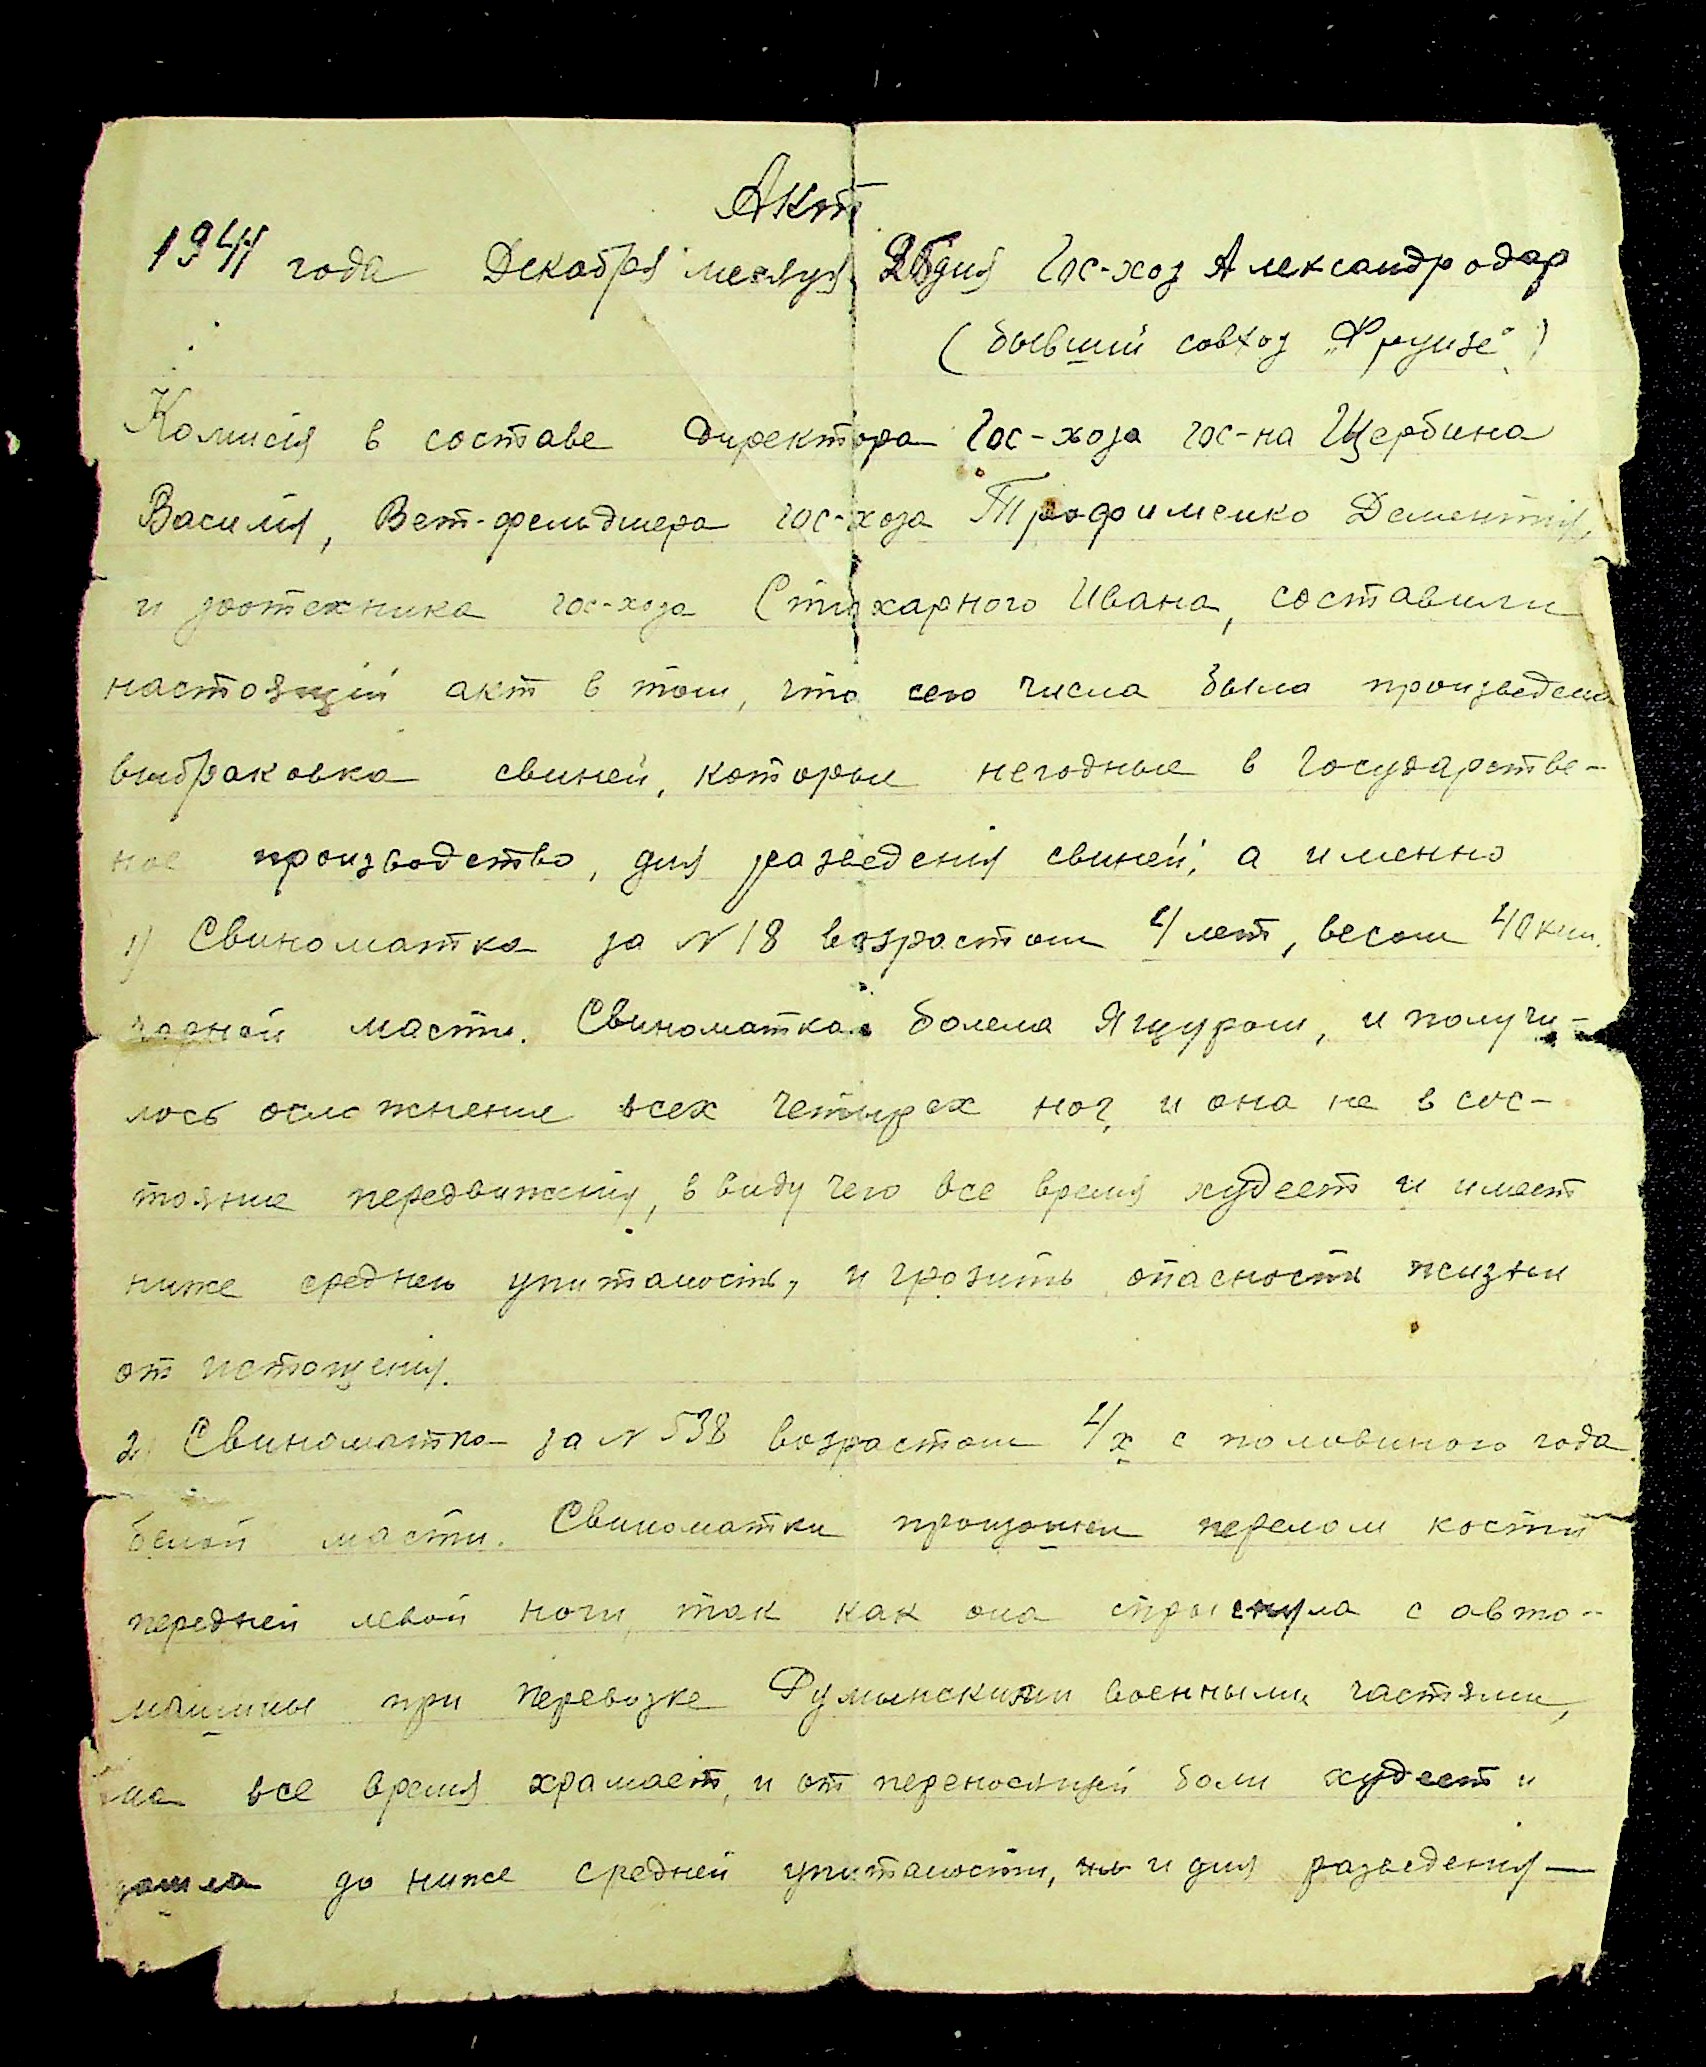 Акт
1941 года Декабря месяця 26 дня Гос-хоз Александродар
(бывший совхоз „Фрунзе")
Комисія в составе директора Гос-хоза гос-на Щербина
Василія, Вет-фельдшера гос-хоза Трофименко Дементія,
и зоотехника гос-хоза Стихарного Ивана, составили
настоящій акт в том, что сего числа была произведена
выбраковка свиней, которые негодные в Государстве-
ное производство, для разведенія свиней, а именно
1) Свиноматка за N 18 возрастом 4 лет, весом 40 кгм.
чорной масти. Свиноматка болела Ящуром, и получи-
лось осложнение всех четырех ног, и она не в сос-
тояние передвиженія, в виду чего все время худеет и имеет
ниже среднею упитаность, и грозить опасность жизни
от истощенія.
2) Свиноматка за N 538 возрастом 4х с половиного года
белой масти. Свиноматки произошел перелом кости
передней левой ноги, так как она спрыснула с авто-
машины при перевозке Румынскими военными частями,
она все время храмает, и от переносящей боли худеет и
дошла до ниже средней упитаности, и для разведенія —